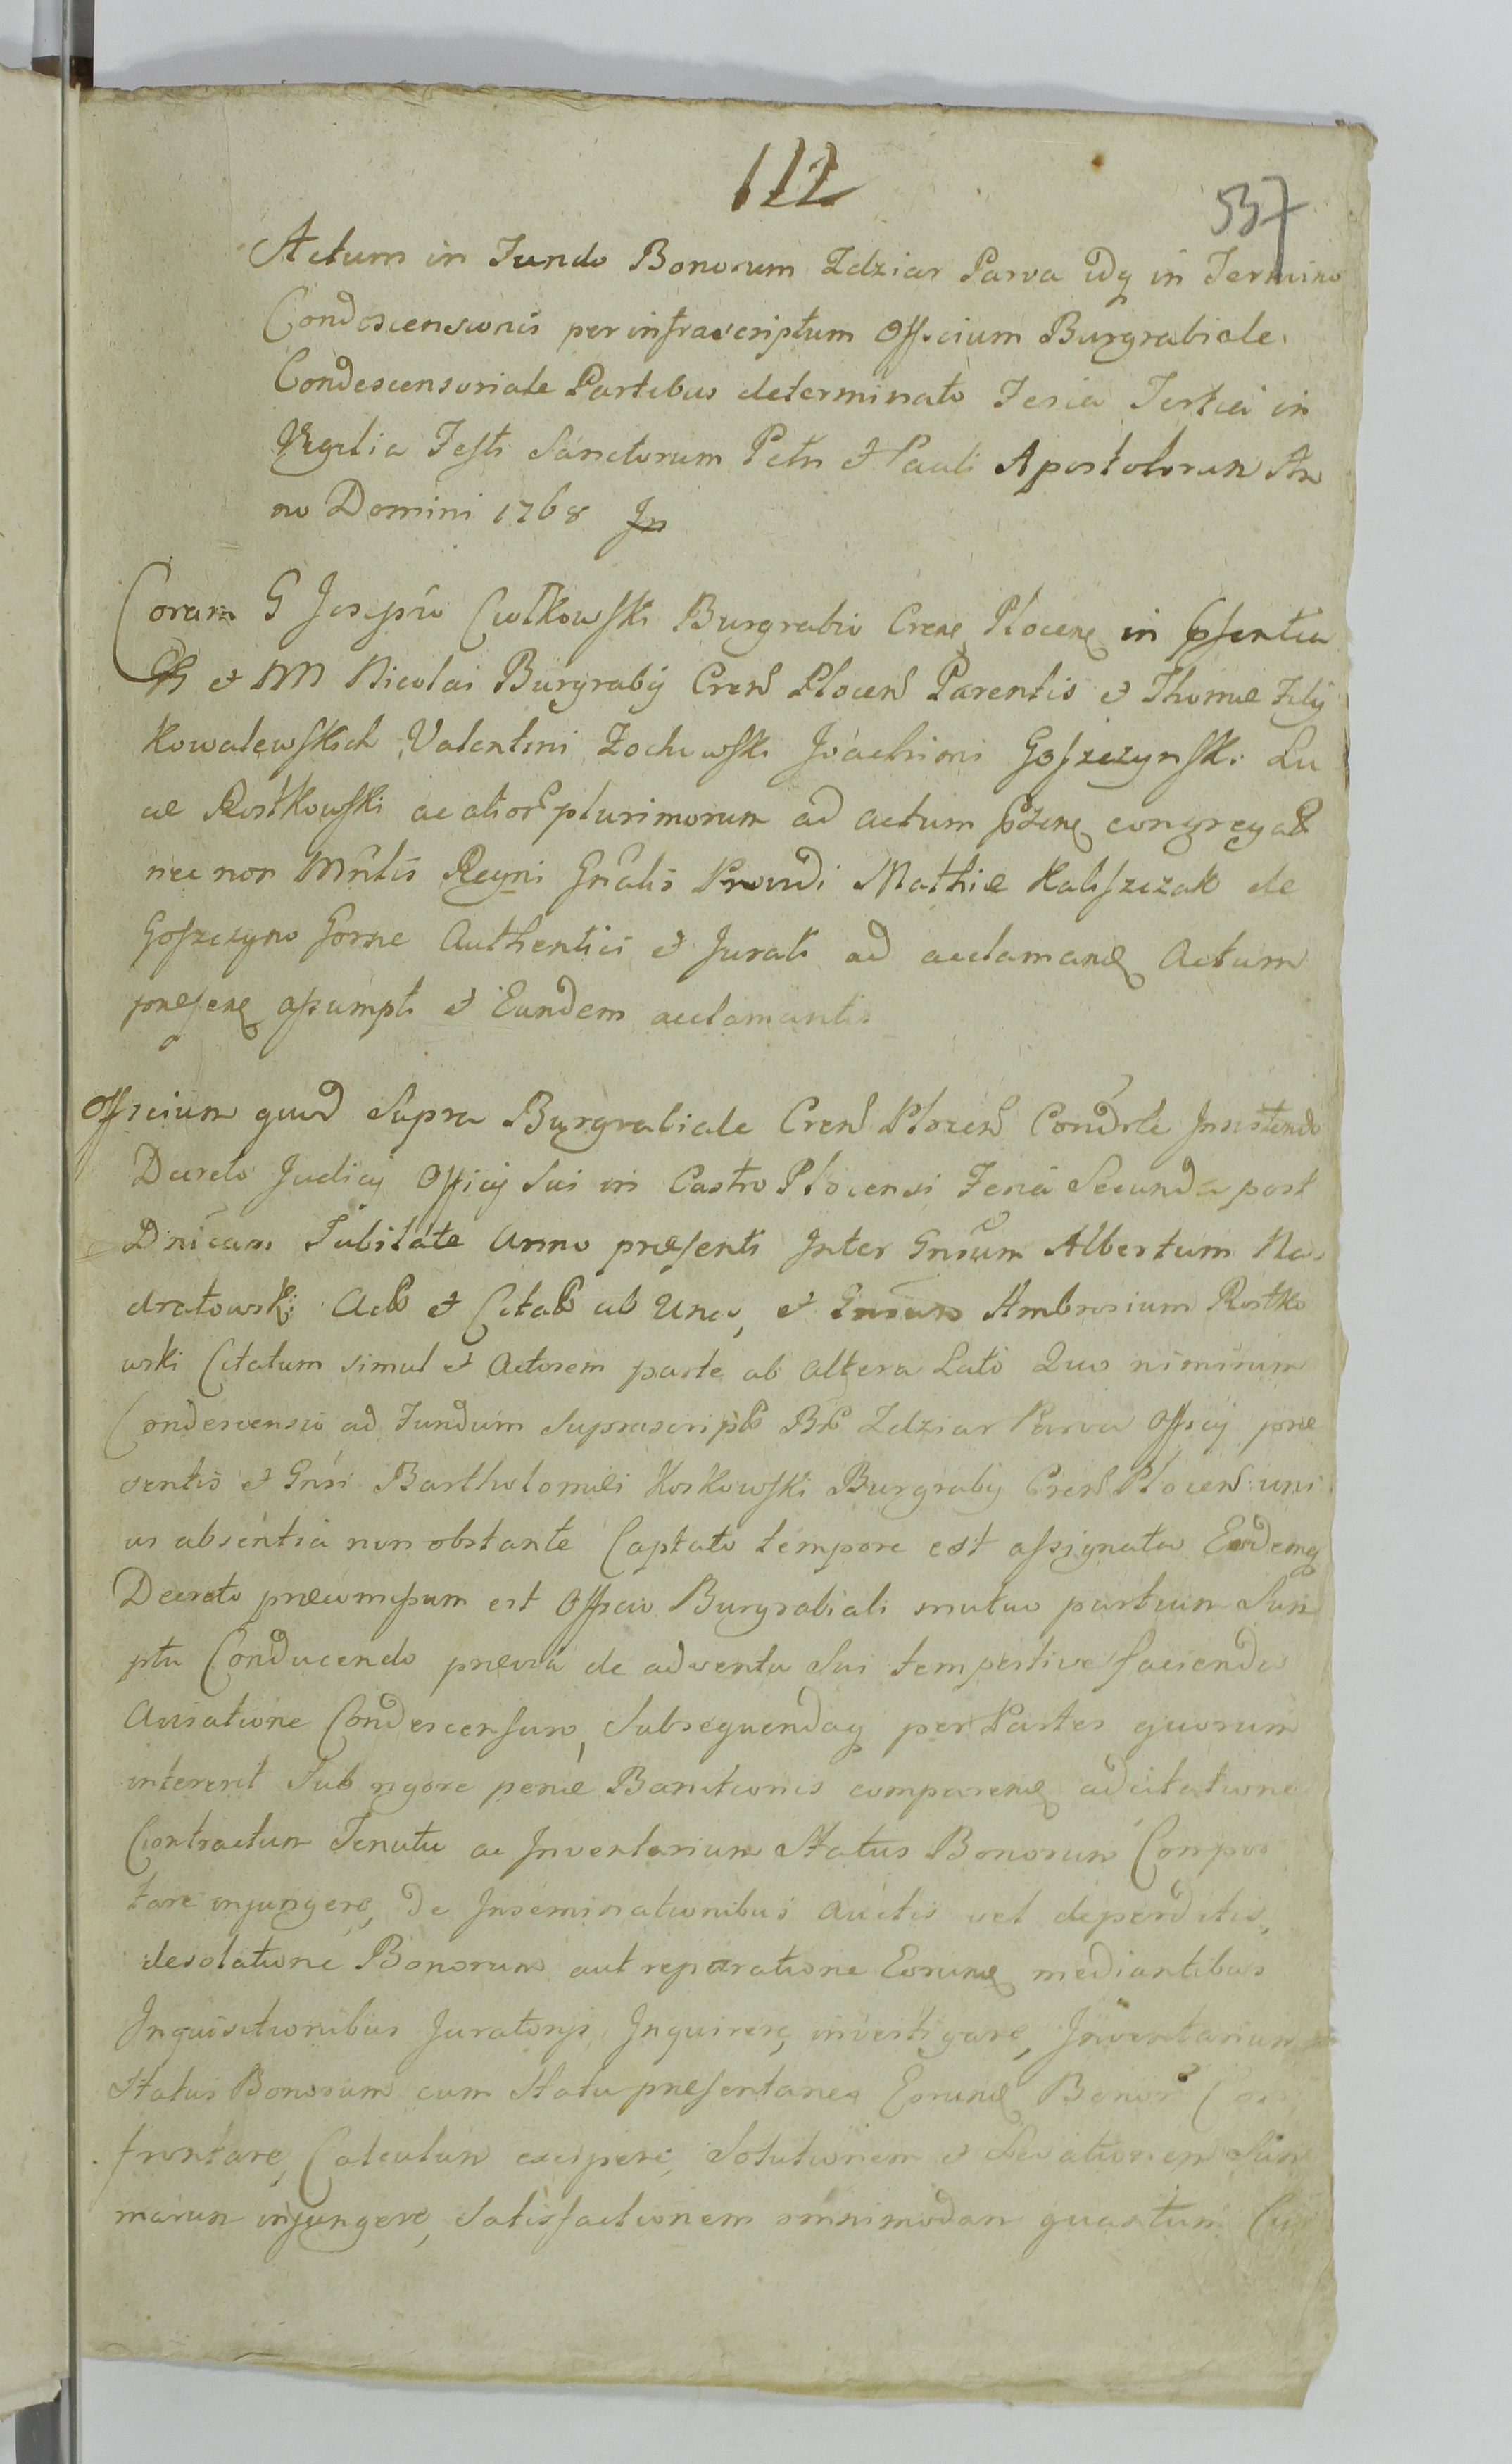 112
537
Actum in Fundo Bonorum Zdziar Parva idq in Termino
Condescensionis per infrascriptum Officium Burgrabiale
Condescensoriale Partibus determinato Feria Tertia in
Vigilia Festi Sanctorum Petri et Pauli Apostolorum An
no Domini 1768
Coram G Josepho Ciołkowski Burgrabio Crens Plocens in Psentia
GG et MM Nicolai Burgrabij Crens Plocens Parentis et Thomæ Filij
Kowalewskich Valentini Żochowski Joachimi Goszczynski Lu
cæ Rostkowski ac alior plurimorum ad actum psens congregat
nec non Mnlis Regni Gnalis Providi Mathiæ Kaliszczak de
Goszczyno Gorne Authentici et Jurati ad acclamand Actum
præsens assumpti et Eundem acclamantis
Officium quod Supra Burgrabiale Crens Plocens Condrle Insistendo
Decreto Judicij Officij Sui in Castro Plocensi Feria Secunda post
Dnicam Jubilate Anno præsenti Inter Gnsum Albertum Na
dratowski Act et Citat ab Una, et Gnsum Ambrosium Rostko
wski Citatum simul et Actorem parte ab altera Lato Quo nimirum
Condescensio ad Fundum Suprascript Br Zdziar Parva Officij præ
sentis et Gnsi Bartholomæi Koskowski Burgrabij Crens Plocens uni
us absentia non obstante Captato tempore est assignata Eodemq
Decreto præcomissum est Officio Burgrabiali mutuo partium Sum
ptu Conducendo prævia de adventu Sui tempestive facienda
Avisatione Condescensuro, Subsequendaq per Partes quorum
intererit Sub rigore penæ Banitionis comparend adcitatione
Contractum Tenutæ ac Inventarium Status Bonorum Compor
tare injungere, De Inseminationibus auctis vel deperditis,
desolatione Bonorum aut reparatione Eorund mediantibus
Inquisitionibus Juratorijs Inquirere, investigare, Inventarium
Status Bonorum cum Statu præsentaneo Eorund Bonor Con
frontare, Calculum excipere, Solutionem et Levationem Sum
marum injungere, Satisfactionem omnimodam quantum Cui